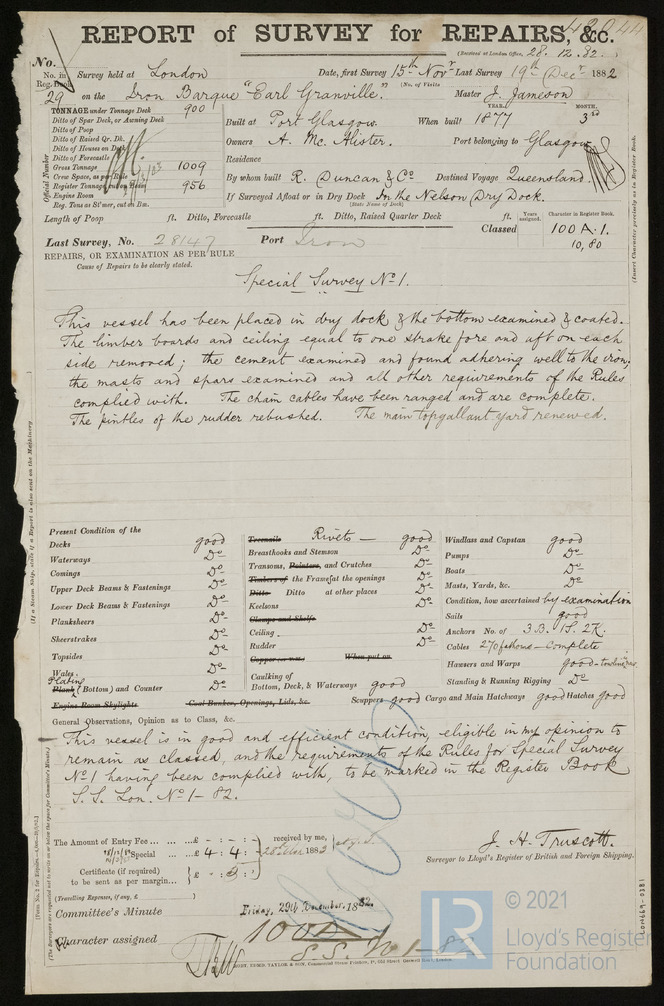 REPORT of SURVEY for REPAIRS, &c.
(Received at London Office, 28. 12. 82.)
No.
No. in Reg. Book 29
Survey held at London Date, first Survey 15th Novr Last Survey 19th Decr 1882
(No. of Visits
on the Iron Barque "Earl Granville." Master J. Jameson
TONNAGE under Tonnage Deck 900
Ditto of Spar Deck, or Awning Deck
Ditto of Poop
Ditto of Raised Qr. Dk.
Ditto of Houses on Deck
Ditto of Forecastle
Gross Tonnage 1009
Crew Space, as per Rule
Register Tonnage 956
Engine Room
Reg. Tons as St'mer, cut on Bm.
Official Number
YEAR. MONTH.
Built at Port Glasgow. When built 1877 3rd
Owners A. Mc. Alister. Port belonging to Glasgow
Residence
By whom built R. Duncan & Co Destined Voyage Queensland.
If Surveyed Afloat or in Dry Dock In the Nelson Dry Dock.
(State Name of Dock)
(Insert Character precisely as in Register Book.
Length of Poop ft. Ditto, Forecastle ft. Ditto, Raised Quarter Deck ft.
Years assigned. Character in Register Book.
Classed 100 A. 1.
10, 80
Last Survey, No. 28147 Port Iron
REPAIRS, OR EXAMINATION AS PER RULE
Cause of Repairs to be clearly stated.
Special Survey No 1.
This vessel has been placed in dry dock & the bottom examined & coated.
The limber boards and ceiling equal to one strake fore and aft on each
side removed; the cement examined and found adhering well to the iron;
the masts and spars examined and all other requirements of the Rules
complied with. The chain cables have been ranged and are complete.
The pintles of the rudder rebushed. The main topgallant yard renewed.
Present Condition of the
Decks good
Waterways Do
Comings Do
Upper Deck Beams & Fastenings Do
Lower Deck Beams & Fastenings Do
Planksheers Do
Sheerstrakes Do
Topsides Do
Wales Do
Plating
Plank (Bottom) and Counter Do
Engine Room Skylights Coal Bunker, Openings, Lids, &c.
Treenails Rivets — good
Breasthooks and Stemson Do
Transoms, Pointers, and Crutches Do
Timbers of the Frame at the openings Do
Ditto Ditto at other places Do
Keelsons Do
Clamps and Shelfs
Ceiling Do
Rudder Do
Copper When put on
Caulking of
Bottom, Deck, & Waterways good
Scuppers good Cargo and Main Hatchways good Hatches good
Windlass and Capstan good
Pumps Do
Boats Do
Masts, Yards, &c. Do
Condition, how ascertained by examination
Sails good
Anchors No. of 3.B. 1S. 2K.
Cables 270 fathoms — complete
Hawsers and Warps good
Standing & Running Rigging Do
General Observations, Opinion as to Class, &c.
This vessel is in good and efficient condition, eligible in my opinion to
remain as classed, and the requirements of the Rules for Special Survey
No 1 having been complied with, to be marked in the Register Book
S. S. Lon. No 1 - 82.
The Amount of Entry Fee ... ... ... £ - : - :
Special ... £ 4 : 4 :
received by me,
Certificate (if required) £ - : 3 :
to be sent as per margin...
(Travelling Expenses, if any, £
J. H. Truscott.
Surveyor to Lloyd's Register of British and Foreign Shipping.
Committee's Minute Friday, 29th December, 1882.
Character assigned 100A1
S.S. No 1-82
LON669-0381
© 2021
LR
Lloyd's Register
Foundation